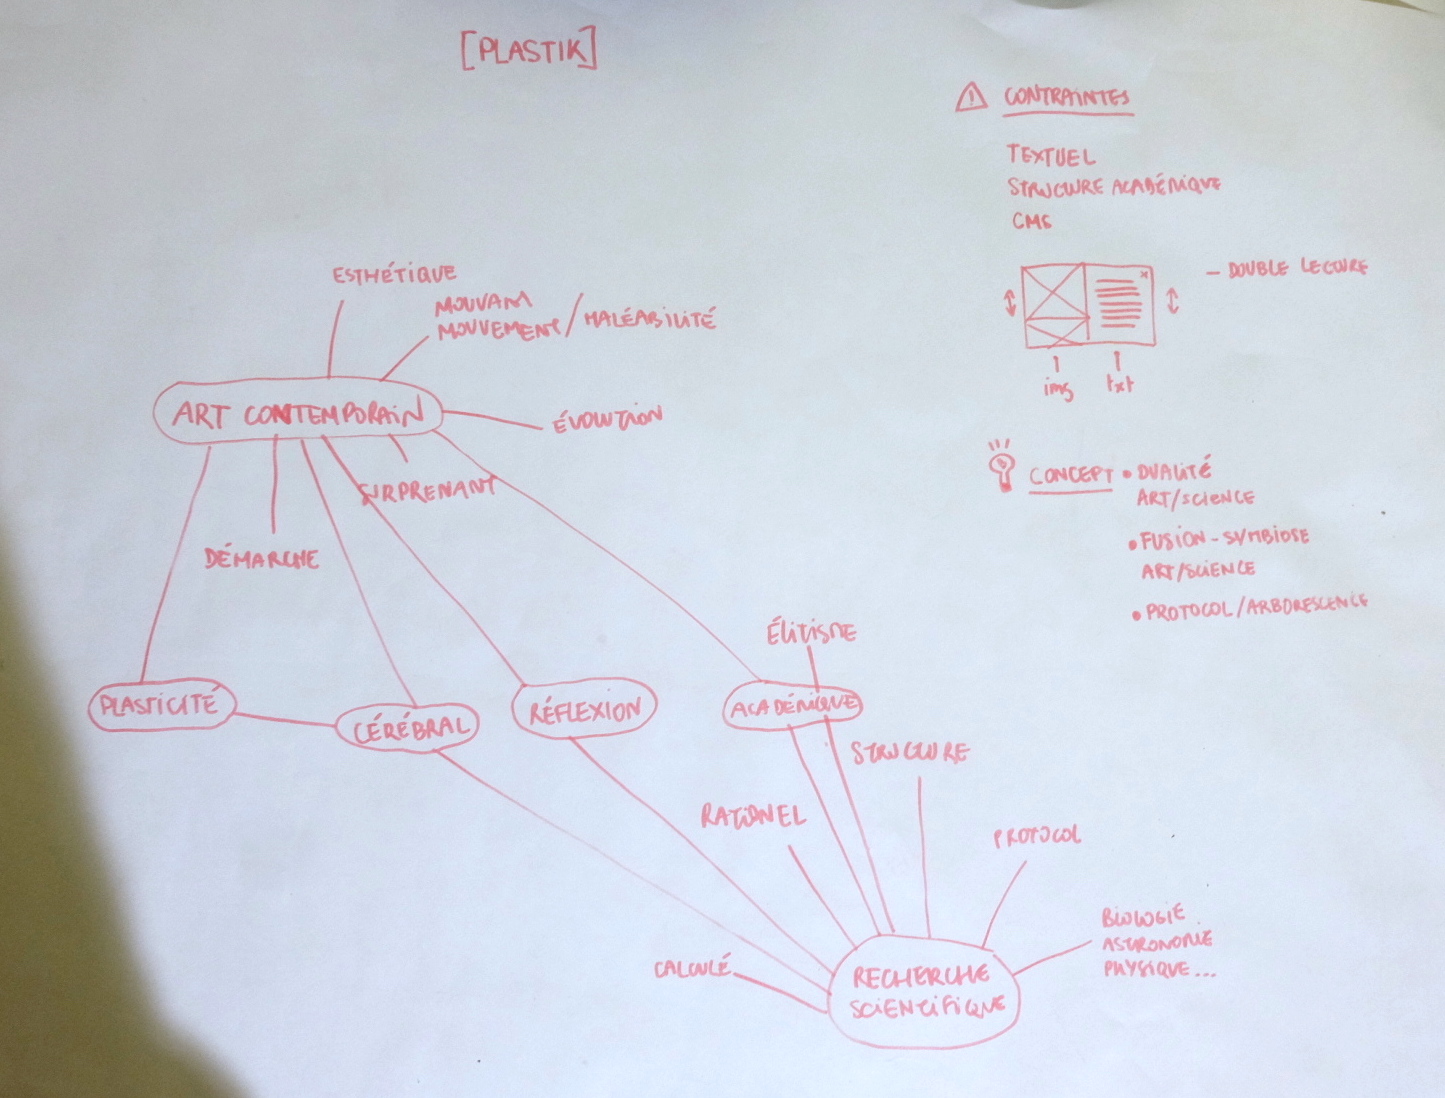 [PLASTIK]
⚠ CONTRAINTES
TEXTUEL
STRUCTURE ACADÉMIQUE
CMS
- DOUBLE LECTURE
img
txt
CONCEPT • DUALITÉ
ART/SCIENCE
• FUSION - SYMBIOSE
ART/SCIENCE
• PROTOCOL / ARBORESCENCE
ESTHÉTIQUE
MOUVANT
MOUVEMENT / MALÉABILITÉ
ART CONTEMPORAIN
ÉVOLUTION
SURPRENANT
DÉMARCHE
ÉLITISME
PLASTICITÉ
CÉRÉBRAL
RÉFLEXION
ACADÉMIQUE
STRUCTURE
RATIONEL
PROTOCOL
BIOLOGIE
ASTRONOMIE
PHYSIQUE...
CALCULÉ
RECHERCHE
SCIENTIFIQUE